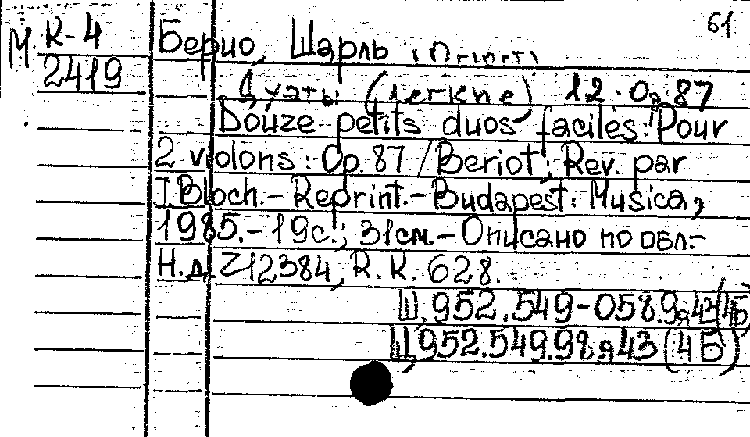 61
М К-4
2419
Берио, Шарль (Beriot)
Дуэты (легкие) 12. Op. 87
Douze petits duos faciles: Pour
2 violons: Op. 87 / Beriot; Rev. par
J. Bloch.- Reprint.- Budapest: Musica,
1985.- 19с.; 31см.- Описано по обл.-
Н.д. Z12384, R.K. 628.
Щ,952.549-058.9я43(4Б)
Щ,952.549.98я43(4Б)